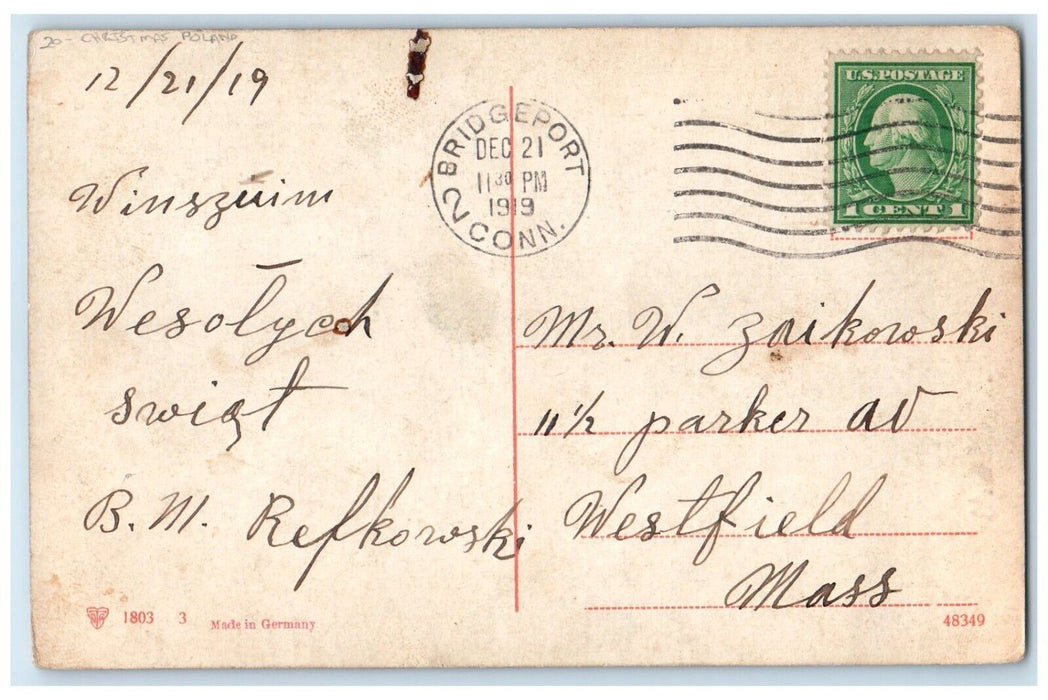 20- CHRISTMAS POLAND
12/21/19
Winszuim
Wesołych
swiąt
B. M. Refkowski
1803 3 Made in Germany
BRIDGEPORT
DEC 21
11 30 PM
1919
2 CONN.
U.S. POSTAGE
1 CENT 1
Mr. W. Zaikowski
11 1/2 parker av
Westfield
Mass
48349